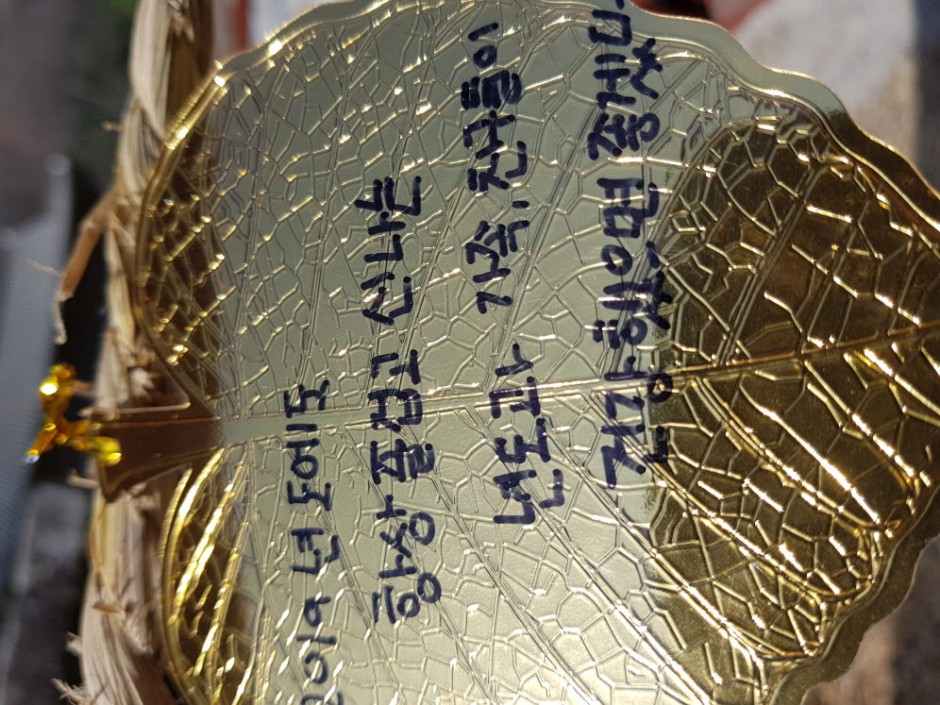 2019 년도에도
항상 즐겁고 신나는
년도과 가족, 친구들이
건강했으면 좋겠다